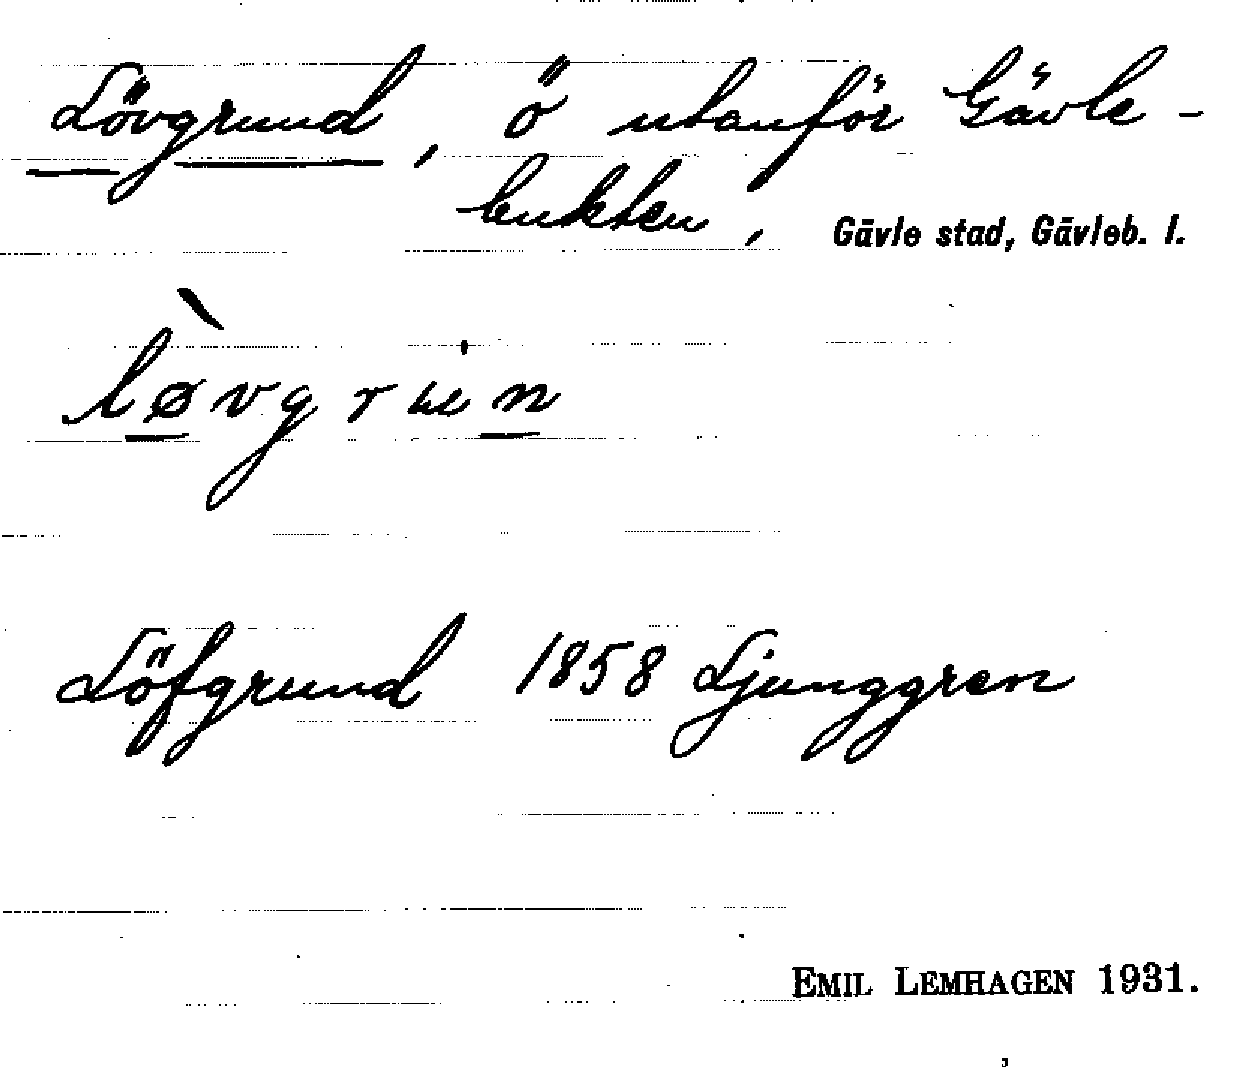 Lövgrund, ö utanför Gävle-
bukten, Gävle stad, Gävleb. l.
lø̀vgrun
Löfgrund 1858 Ljunggren
EMIL LEMHAGEN 1931.